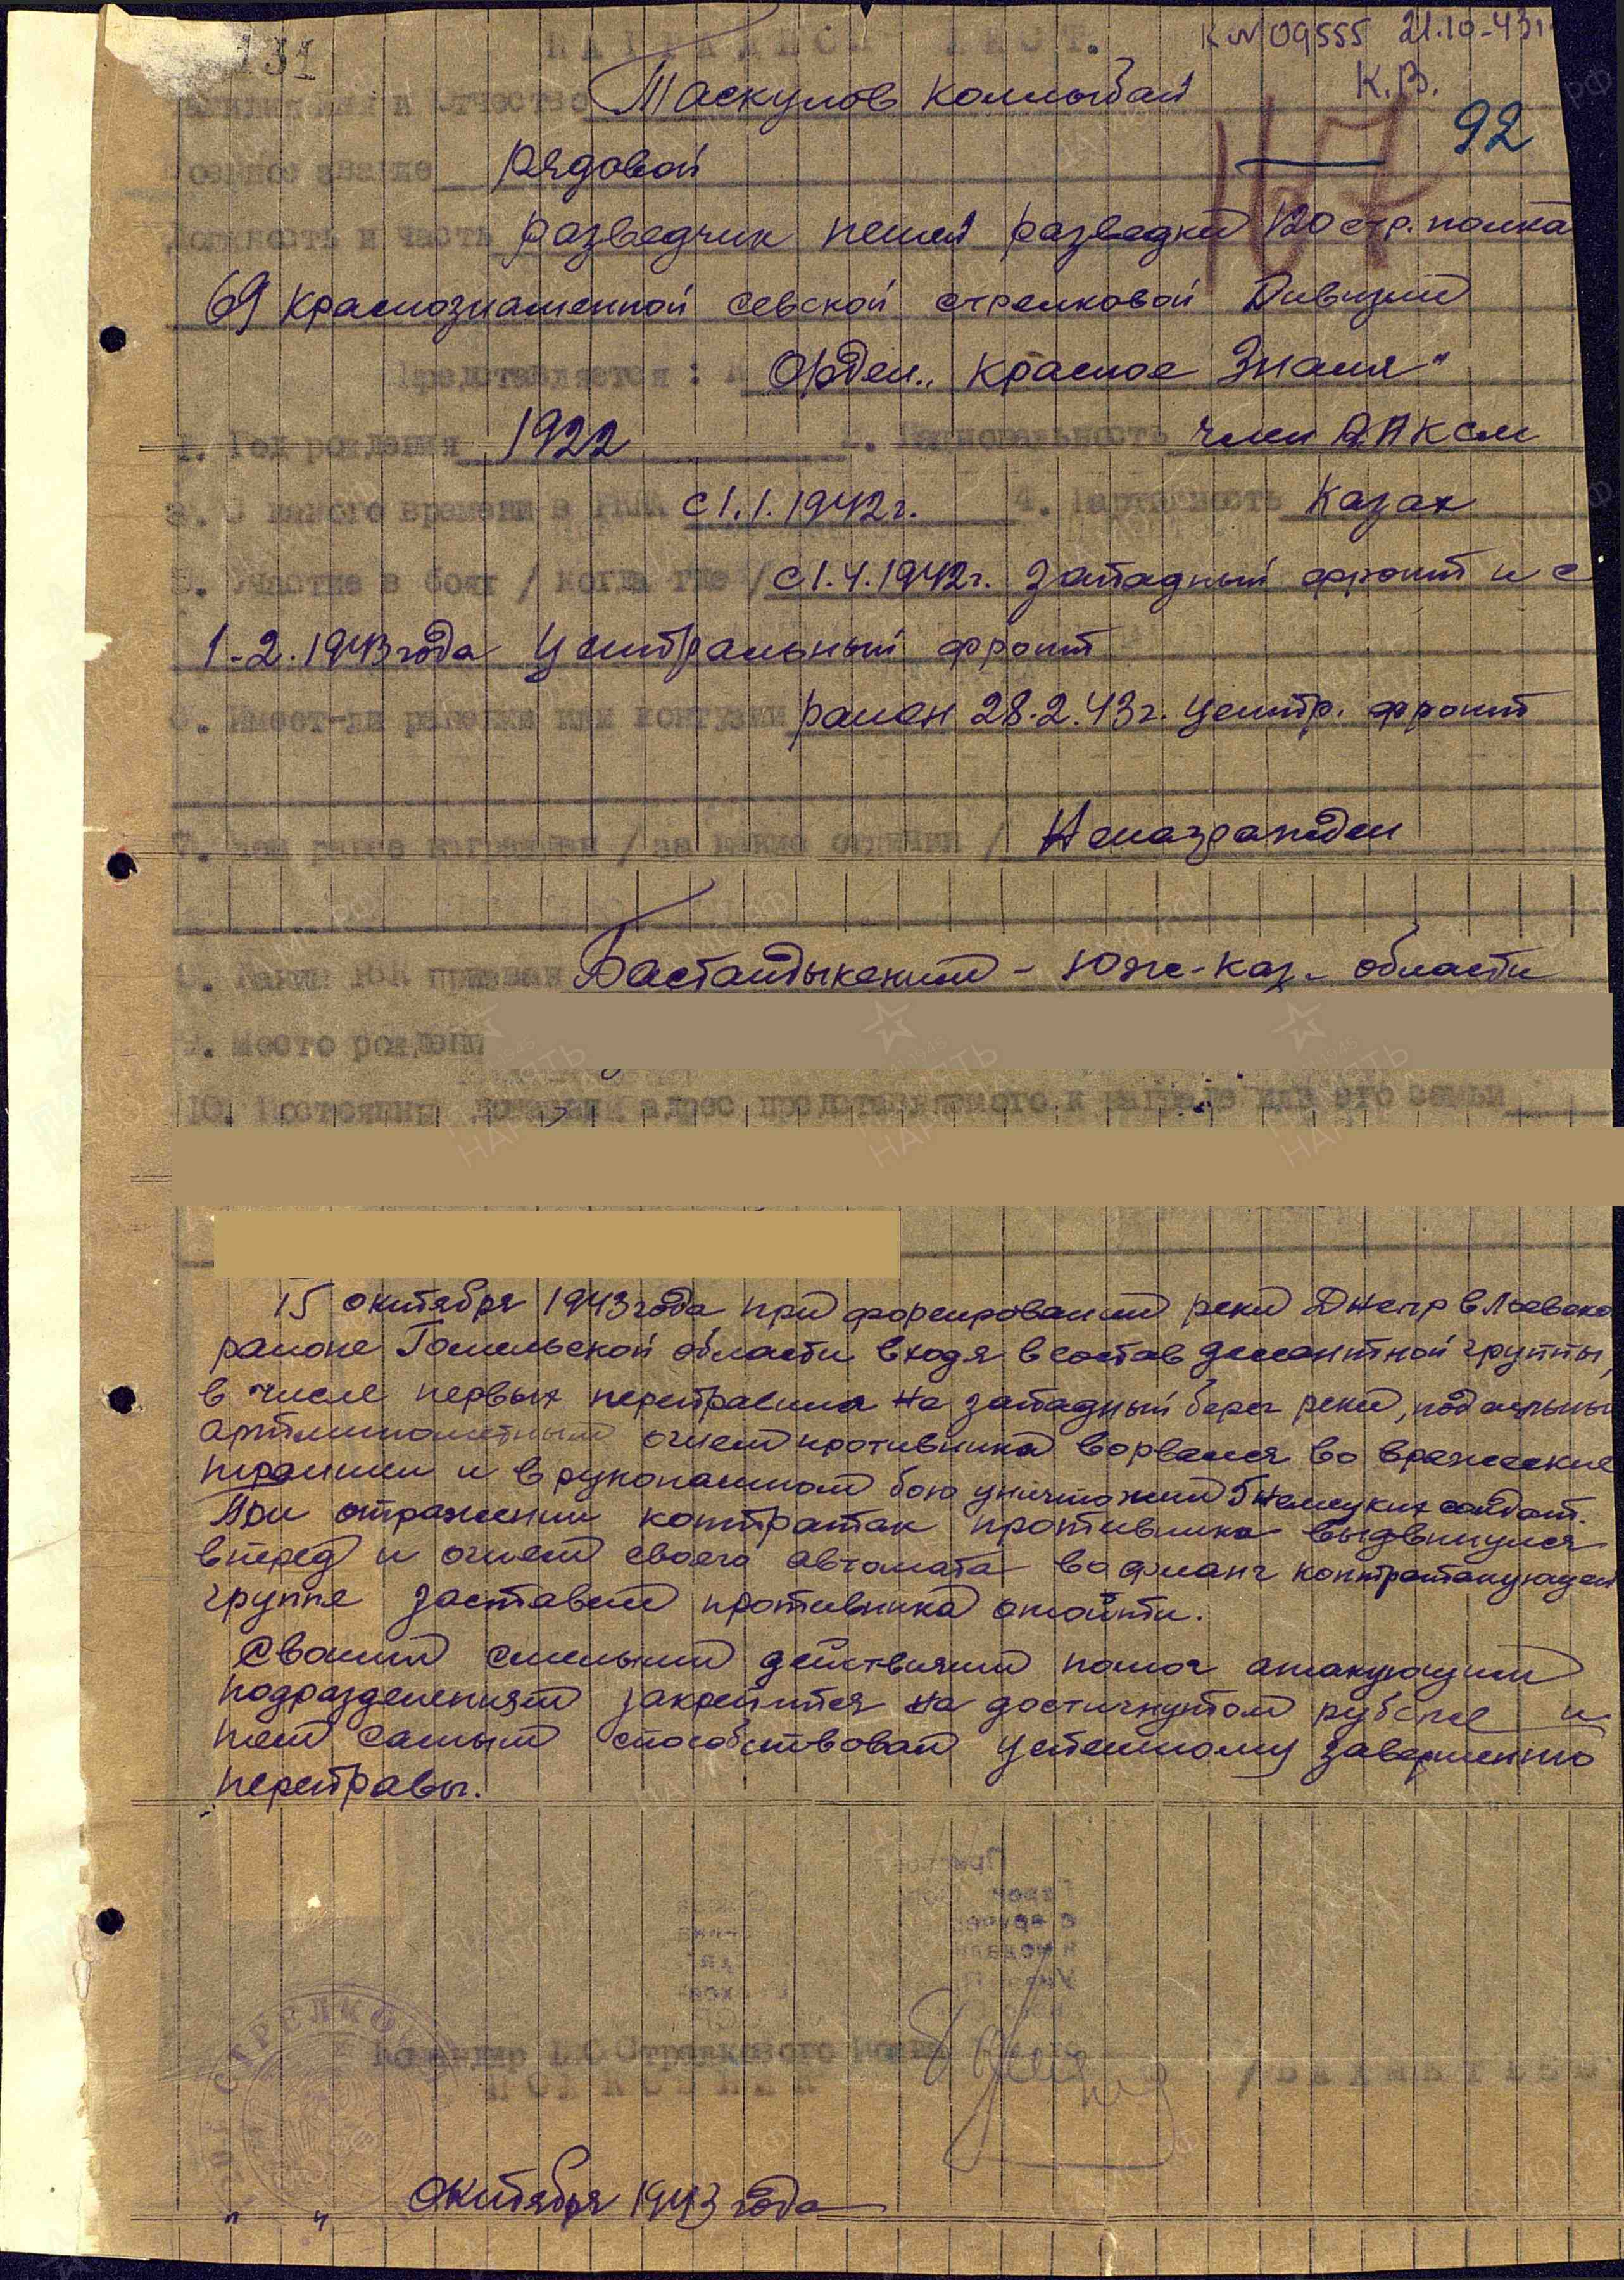 131
НАГРАДНОЙ ЛИСТ.
К №09555 21.10-43г
К.В.
Фамилия имя и отчество Таскулов Колыбай
167
92
Военное звание рядовой
Должность и часть разведчик пешей разведки 120 стр. полка
69 Краснознаменной Севской стрелковой Дивизии
Представляется: к Орден „Красное Знамя"
1. Год рождения 1922 2. Национальность член ВЛКСМ
3. С какого времени в РККА с 1.1.1942г. 4. Партийность Казах
5. Участие в боях / когда где / с 1.4.1942г. Западный фронт и с
1-2.1943 года Центральный фронт
6. Имеет-ли ранения или контузии ранен 28.2.43г. Центр. фронт
7. Чем ранее награжден / за какие отличия / Ненагражден
8. Каким РВК призван Бастандыкским - Юж-Каз- области
9. Место рождения
10. Постоянный домашний адрес представляемого к награде или его семьи
15 октября 1943 года, при форсировании реки Днепр в Лоевском
районе Гомельской области входя в состав десантной группы,
в числе первых переправился на западный берег реки, под сильным
артминометным огнем противника ворвался во вражеские
траншеи и в рукопашном бою уничтожил 5 немецких солдат.
При отражении контратак противника выдвинулся
вперед и огнем своего автомата во фланг контратакующей
группе заставил противника отойти.
Своими смелыми действиями помог атакующим
подразделениям закрепится на достигнутом рубеже и
тем самым способствовал успешному завершению
переправы.
Командир 120 Стрелкового полка
ПОЛКОВНИК
СТРЕЛКОВ
" " Октября 1943 года